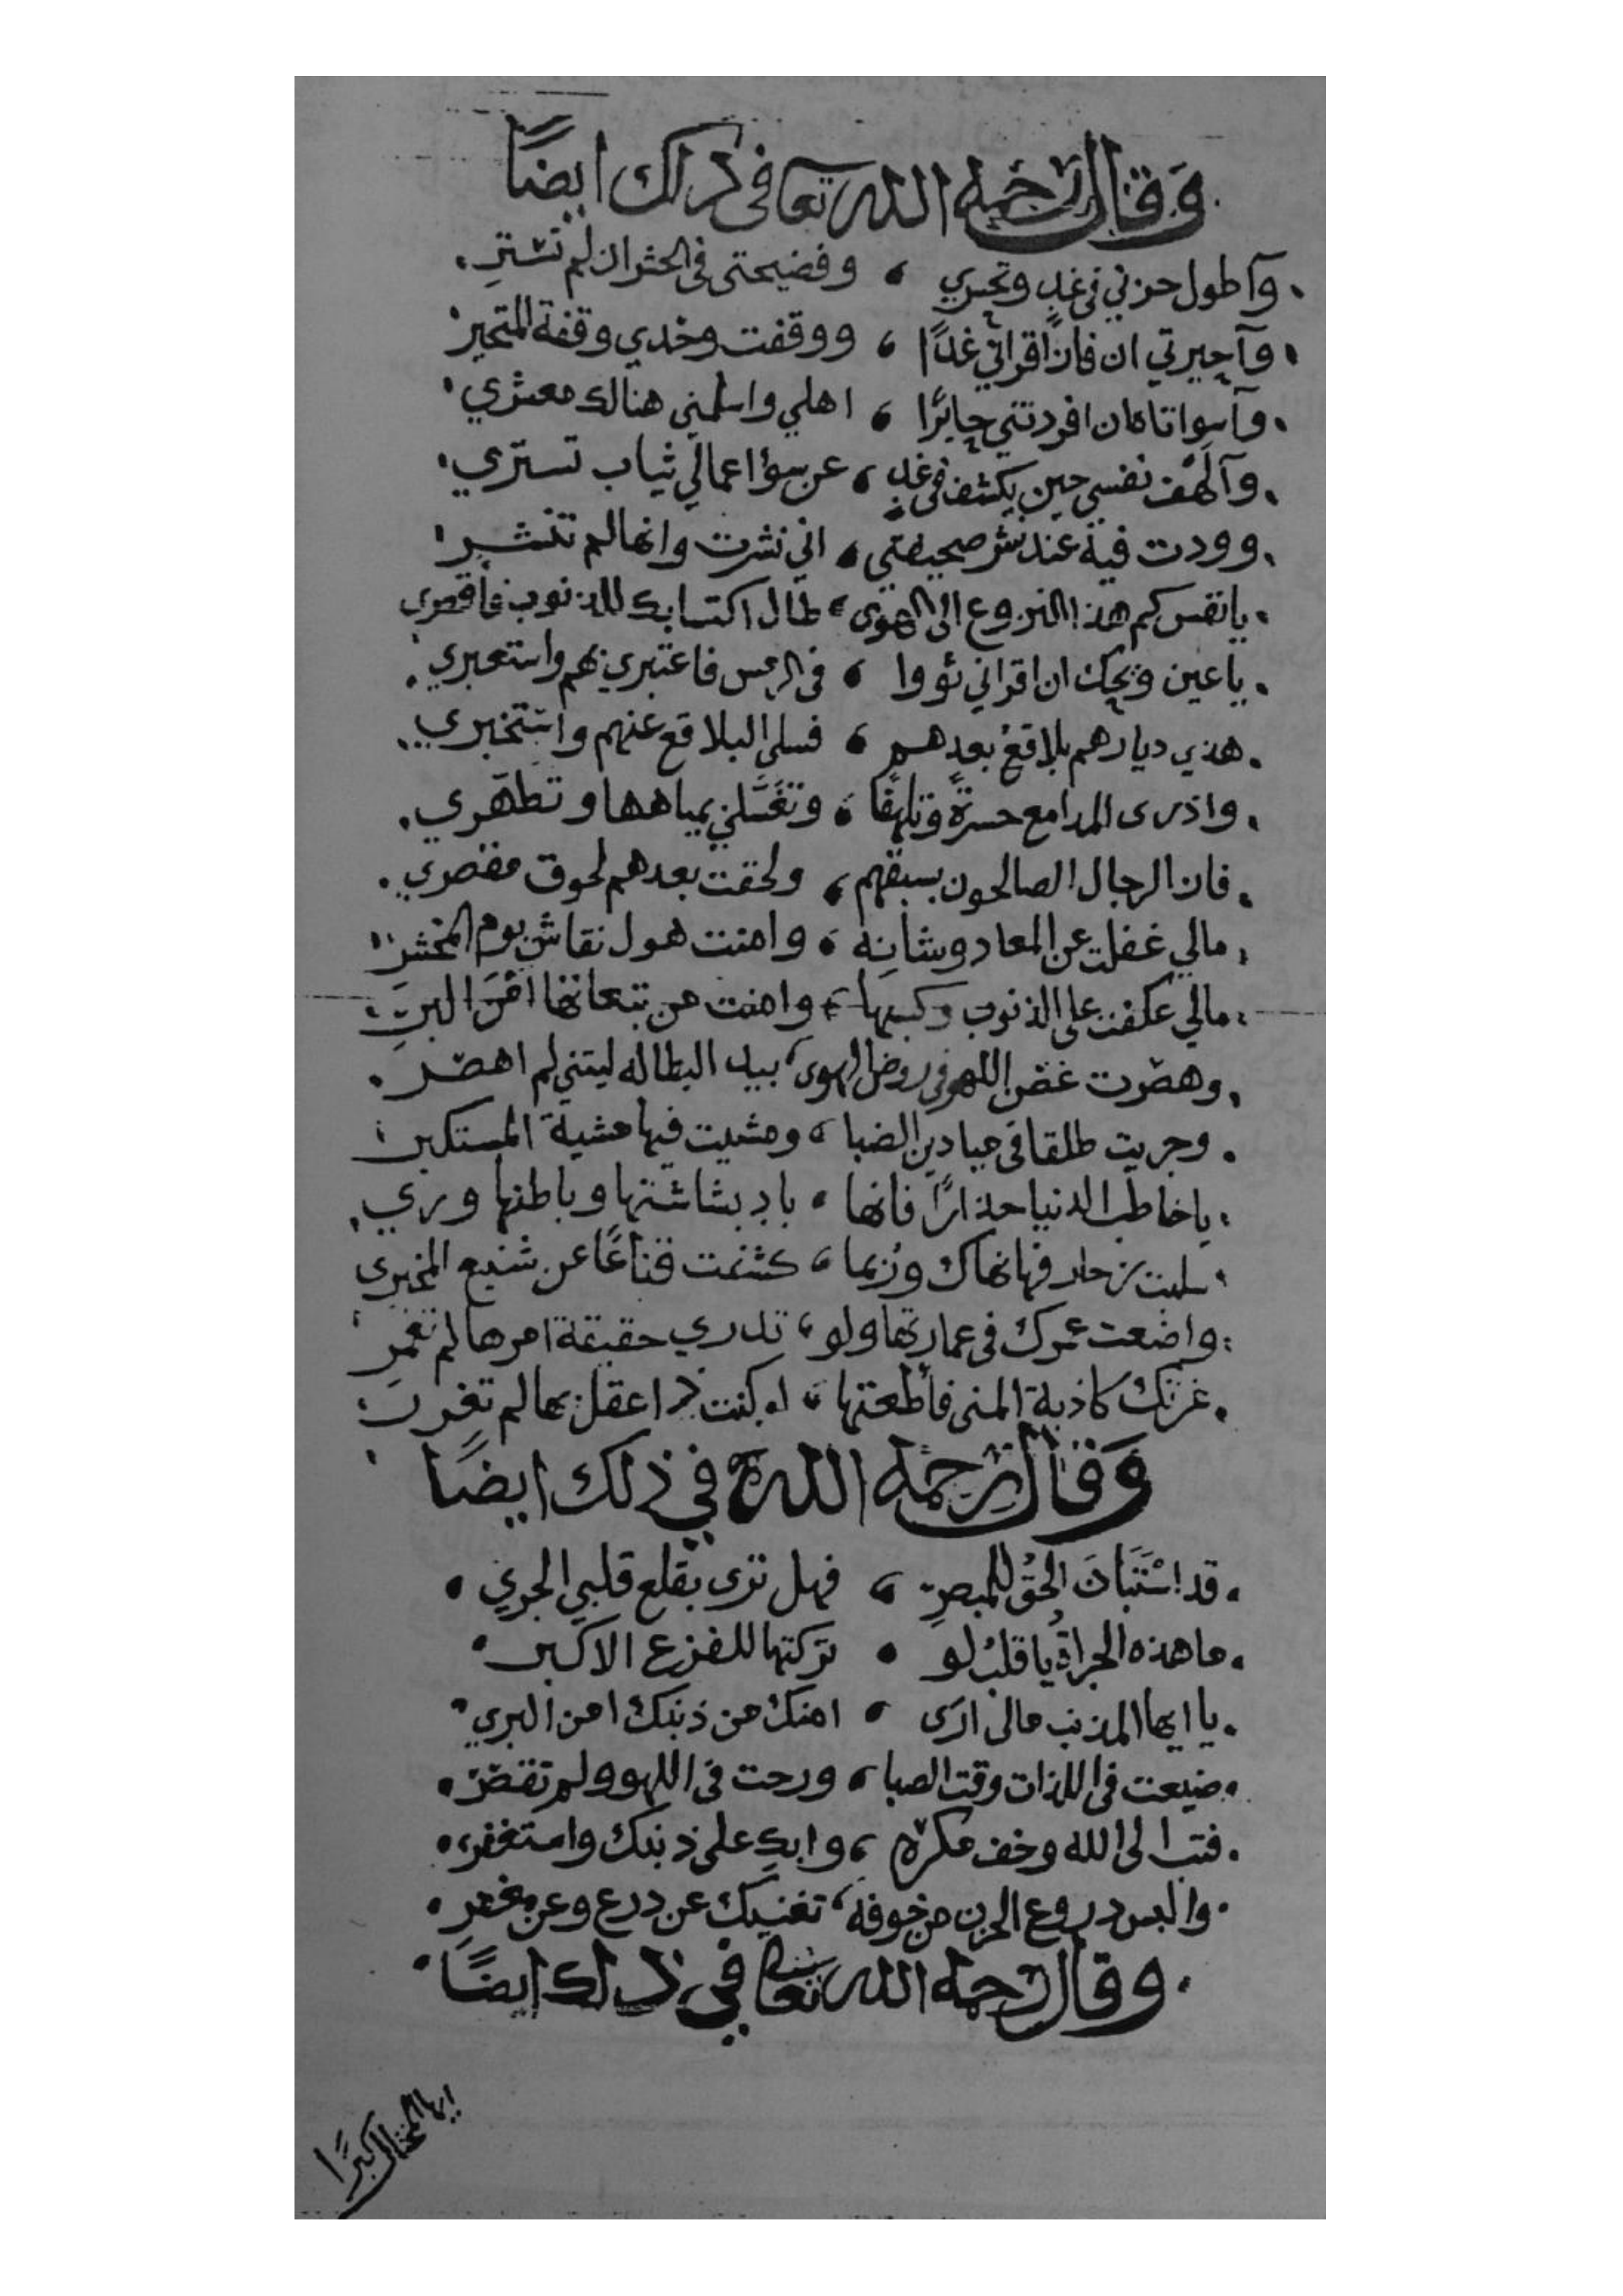 وَقَالَ رَحمه الله تعا فى ذلك ايضًا
وآطول حزني فى غدٍ وتحيري ، وفضيحتى فى الحشر ان لم تسترِ
وآحيرتي ان فاز اقراني غدًا ، ووقفت وحدي وقفة المتحير
وآسواتاه ان افردتني جابرًا ، اهلي واسلمني هنالك معشري
وآلهف نفسي حين يكشف فى غدٍ ، عن سؤ اعمالي ثياب تستري
ووددت فيه عند نشر صحيفتي ، اني نشرت وانها لم تنشر
يا نفس كم هذا النزوع الى الهوى ، طال اكتسابك للذنوب فأقصري
يا عين ويحك ان اقراني ثووا ، فى الرمس فاعتبري بهم واستعبري
هذي ديارهم بلاقعُ بعدهم ، فسلي البلاقع عنهم واستخبري
واذرى المدامع حسرةً وتلهفًا ، وتغَسَّلي بمياهها وتطهّري
فاز الرجال الصالحون بسبقهم ، ولحقت بعدهم لحوق مقصري
مالي غفلت عن المعاد وشانه ، وامنت هول نقاش يوم المحشر
مالي عكفت على الذنوب وكسبها ، وامنت من تبعاتها امْنَ البرِ
وهصرت غصن اللهو فى روض الهوى ، بيد البطاله ليتني لم اهصر
وجريت طلقا فى ميادين الصبا ، ومشيت فيها مشية المستكبر
يا خاطب الدنيا حذارًا فانها ، بادٍ بشاشتها وباطنها وري
سلبت نهاك ورُبما ، كشفت قناعًا عن شنيع المخبرى
واضعت عمرك فى عمارتها ولو ، تدري حقيقة امرها لم تعْمرِ
غرتك كاذبة المنى فأطعتها ، لو كنت ذا عقل بها لم تغرر
وَقَالَ رَحمه الله فى ذلك ايضًا
قد اسْتَبَانَ الحقُ للمبصرِ ، فهل ترى يقلع قلبي الجري
ما هذه الجراةُ يا قلبُ لو ، تركتها للفزع الاكبر
يا ايها المذنب مالى ارى ، امنك من ذنبك امن البري
ضيعت فى اللذات وقت الصبا ، ورحت فى اللهو ولم تقصر
فتب الى الله وخف مكره ، وابكِ على ذنبك واستغفر
والبس دروع الحزن من خوفه ، تغنيك عن درع وعن مغفرِ
وقال رحمه الله تعا فى ذلك ايضًا
ايها المختال كبرًا